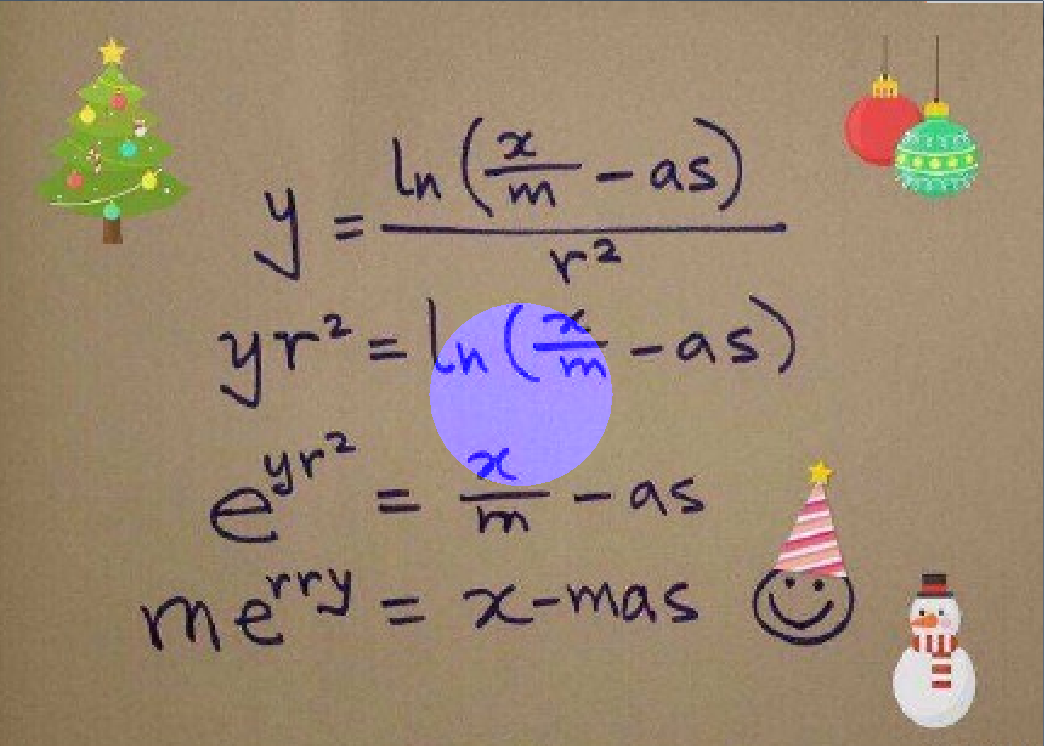 y = ln(x/m - as)/r²
yr² = ln(x/m - as)
e^yr² = x/m - as
me^rry = x-mas